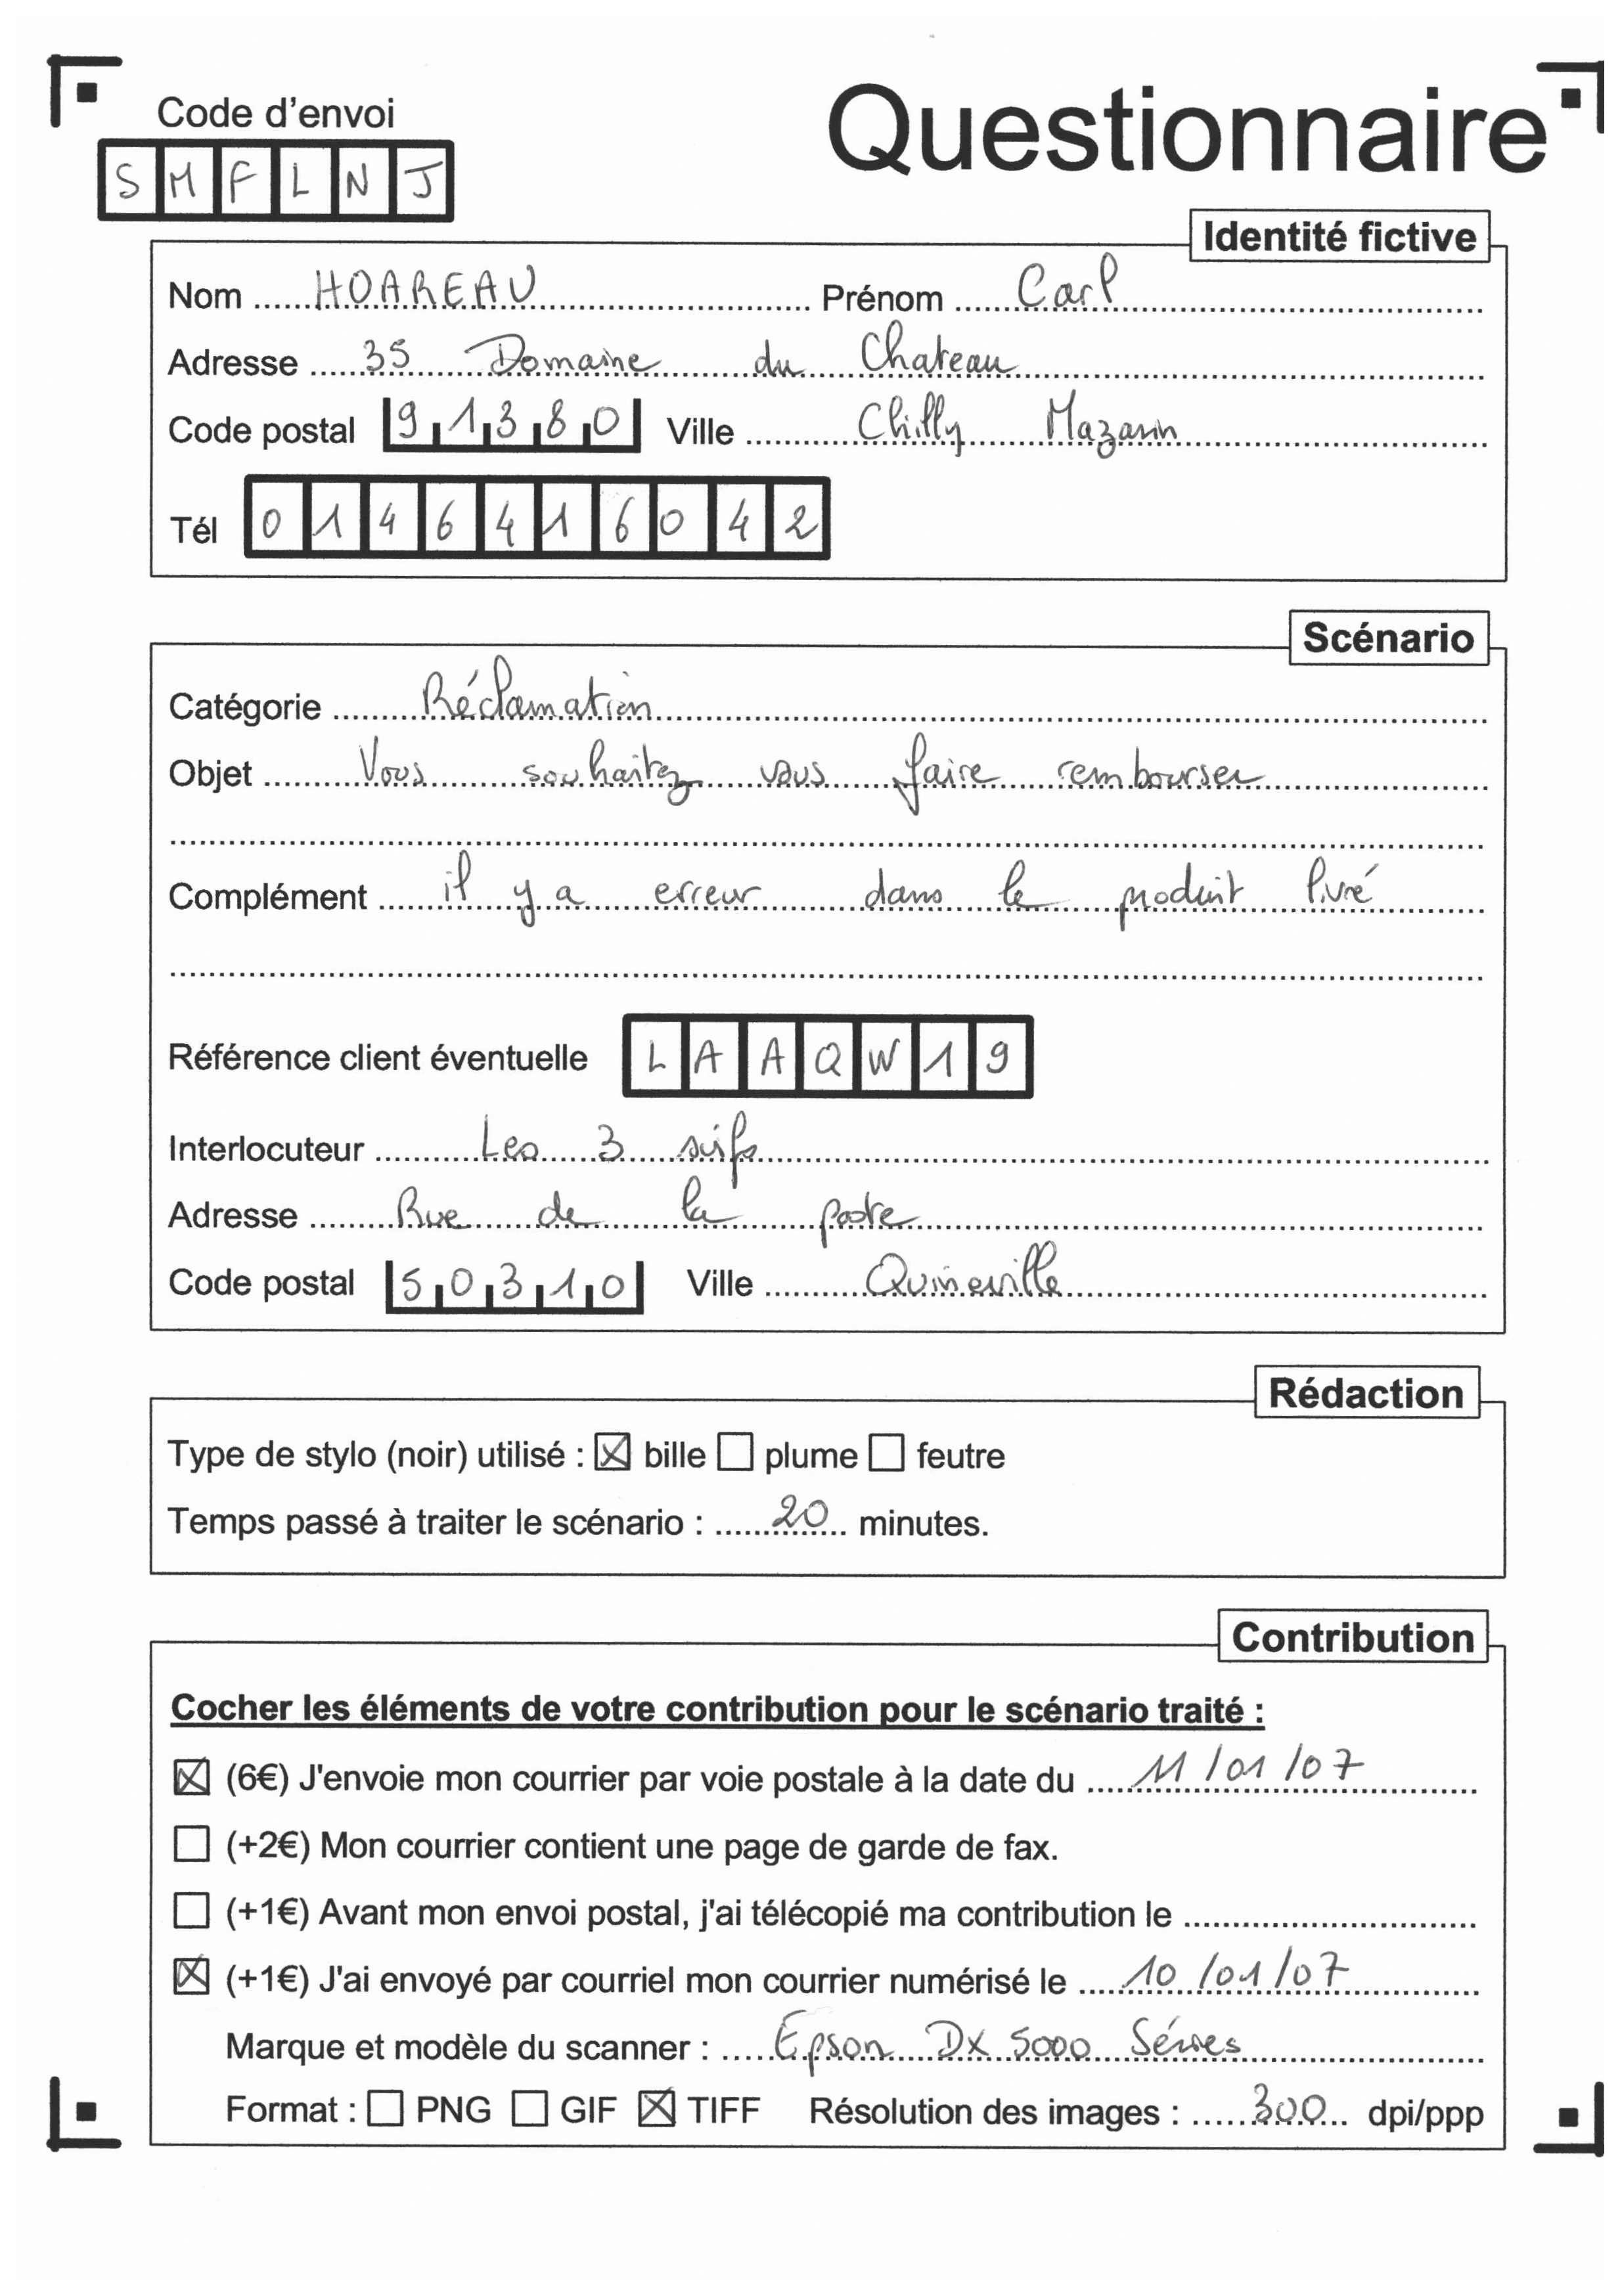 Code d'envoi
Questionnaire
S M F L N J
Identité fictive
Nom ...... HOAREAU ...... Prénom ...... Carl ......
Adresse ...... 35 Domaine du Chateau ......
Code postal 9 1 3 8 0 Ville ...... Chilly Mazarin ......
Tél 0 1 4 6 4 1 6 0 4 2
Scénario
Catégorie ...... Réclamation ......
Objet ...... Vous souhaitez vous faire rembourser ......
Complément ...... il y a erreur dans le produit livré
Référence client éventuelle L A A Q W 1 9
Interlocuteur ...... Les 3 suifs ......
Adresse ...... Rue de la poste ......
Code postal 5 0 3 1 0 Ville ...... Quineville ......
Rédaction
Type de stylo (noir) utilisé : ☒ bille ☐ plume ☐ feutre
Temps passé à traiter le scénario : ...... 20 ...... minutes.
Contribution
Cocher les éléments de votre contribution pour le scénario traité :
☒ (6€) J'envoie mon courrier par voie postale à la date du ...... 11/01/07 ......
☐ (+2€) Mon courrier contient une page de garde de fax.
☐ (+1€) Avant mon envoi postal, j'ai télécopié ma contribution le ......
☒ (+1€) J'ai envoyé par courriel mon courrier numérisé le ...... 10/01/07 ......
Marque et modèle du scanner : ...... Epson Dx 5000 Séries ......
Format : ☐ PNG ☐ GIF ☒ TIFF Résolution des images : ...... 300 ...... dpi/ppp